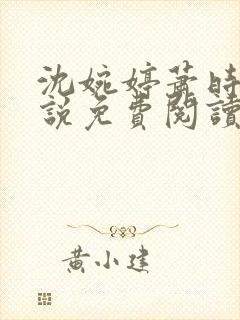 沈婉婷萧时
說免費閱讀
黄小建